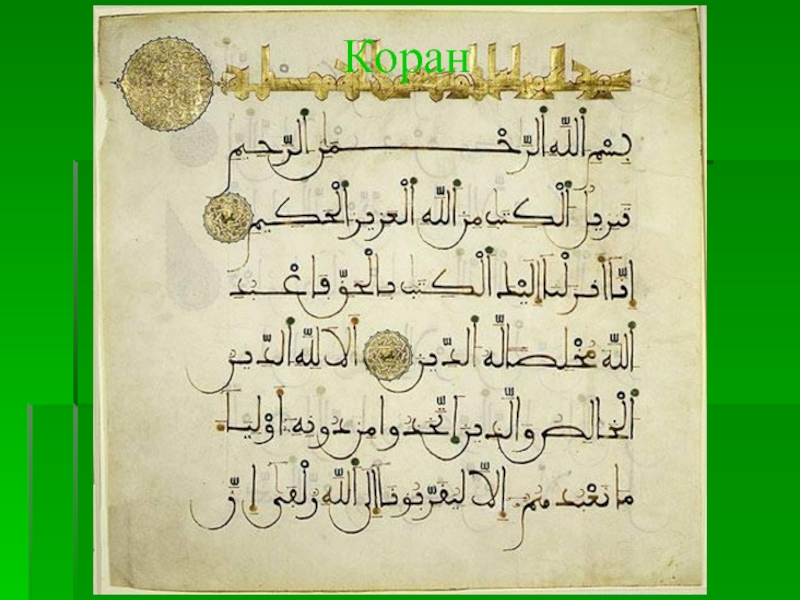 Коран
بسم الله الرحمن الرحيم
تنزيل الكتب من الله العزيز الحكيم
انا انزلنا اليك الكتب بالحق فاعبد
الله مخلصا له الدين الا لله الدين
الخالص والذين اتخذوا من دونه اولياء
ما نعبدهم الا ليقربونا الى الله زلفى ان